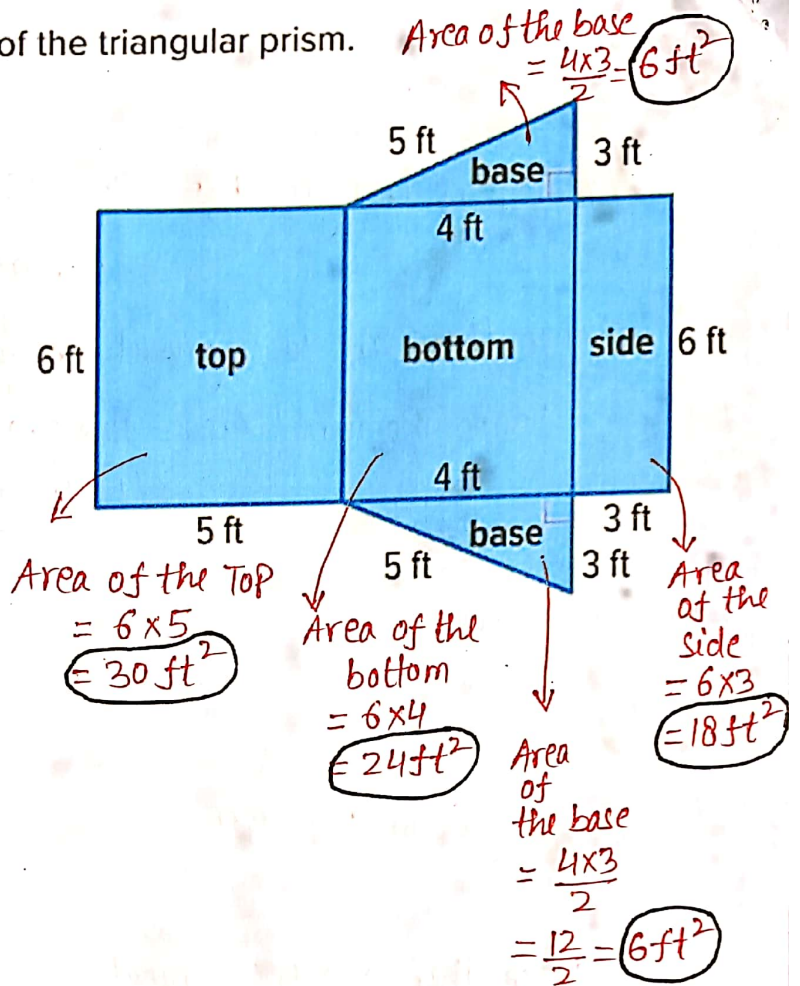 of the triangular prism.
Area of the base
= 4x3/2 = 6 ft²
5 ft
3 ft
base
4 ft
6 ft
top
bottom
side
6 ft
4 ft
5 ft
base
3 ft
5 ft
3 ft
Area of the Top
= 6x5
= 30 ft²
Area of the
bottom
= 6x4
= 24ft²
Area
of the
side
= 6x3
= 18ft²
Area
of
the base
= 4x3/2
= 12/2 = 6ft²